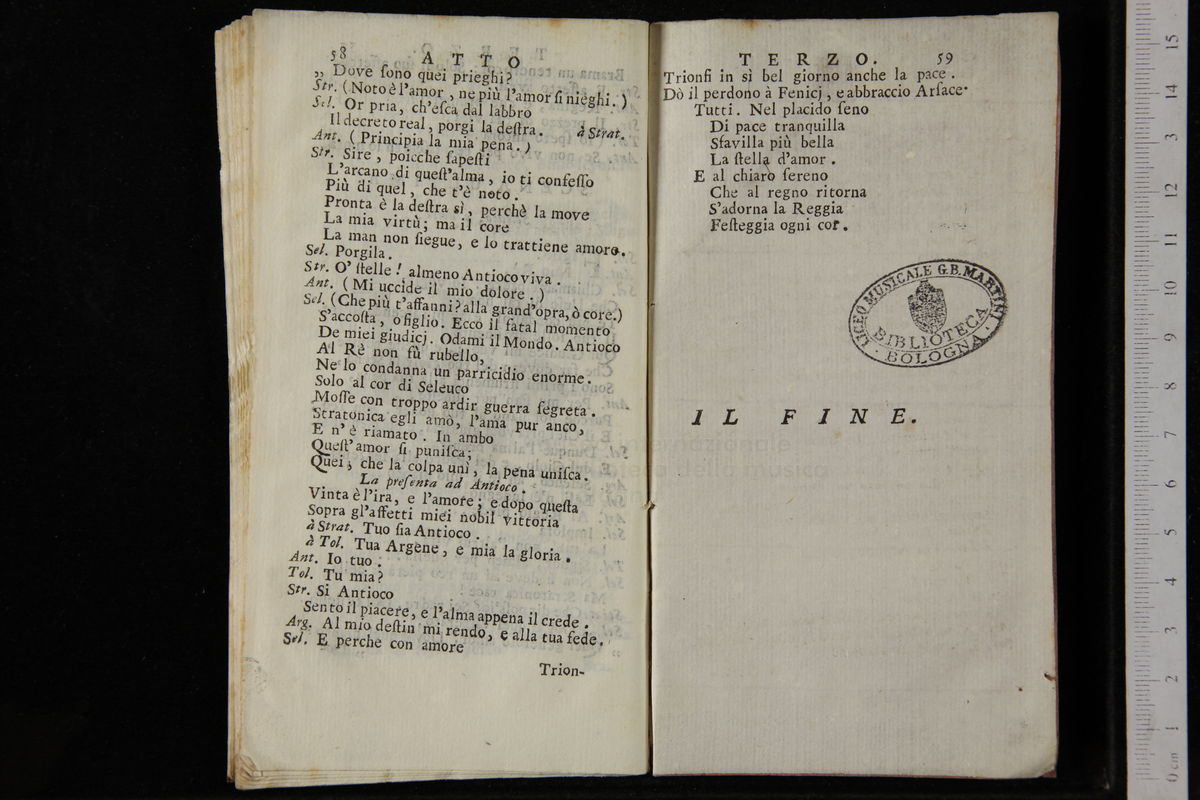 58 ATTO
„ Dove ſono quei prieghi?
Str. (Noto è l'amor, ne più l'amor ſi nieghi.)
Sel. Or pria, ch'eſca dal labbro
Il decreto real, porgi la deſtra. à Strat.
Ant. (Principia la mia pena.)
Str. Sire, poicche ſapeſti
L'arcano di queſt'alma, io ti confeſſo
Più di quel, che t'è noto.
Pronta è la deſtra sì, perchè la move
La mia virtù; ma il core
La man non ſiegue, e lo trattiene amore.
Sel. Porgila.
Str. O' ſtelle! almeno Antioco viva.
Ant. (Mi uccide il mio dolore.)
Sel. (Che più t'affanni? alla grand'opra, ò core.)
S'accoſta, ò figlio. Ecco il fatal momento
De miei giudicj. Odami il Mondo. Antioco
Al Rè non fù rubello,
Ne lo condanna un parricidio enorme.
Solo al cor di Seleuco
Moſſe con troppo ardir guerra ſegreta.
Stratonica egli amò, l'ama pur anco,
E n'è riamato. In ambo
Queſt'amor ſi puniſca;
Quei, che la colpa unì, la pena uniſca.
La preſenta ad Antioco.
Vinta è l'ira, e l'amore; e dopo queſta
Sopra gl'affetti miei nobil vittoria
à Strat. Tuo ſia Antioco.
à Tol. Tua Argene, e mia la gloria.
Ant. Io tuo:
Tol. Tu mia?
Str. Si Antioco
Sento il piacere, e l'alma appena il crede.
Arg. Al mio deſtin mi rendo, e alla tua fede.
Sel. E perche con amore
Trion-
TERZO. 59
Trionfi in sì bel giorno anche la pace.
Dò il perdono à Fenicj, e abbraccio Arſace.
Tutti. Nel placido ſeno
Di pace tranquilla
Sfavilla più bella
La ſtella d'amor.
E al chiaro ſereno
Che al regno ritorna
S'adorna la Reggia
Feſteggia ogni cor.
LICEO MUSICALE G.B. MARTINI
BIBLIOTECA
BOLOGNA
IL FINE.
internazionale
della musica
0 cm 1 2 3 4 5 6 7 8 9 10 11 12 13 14 15